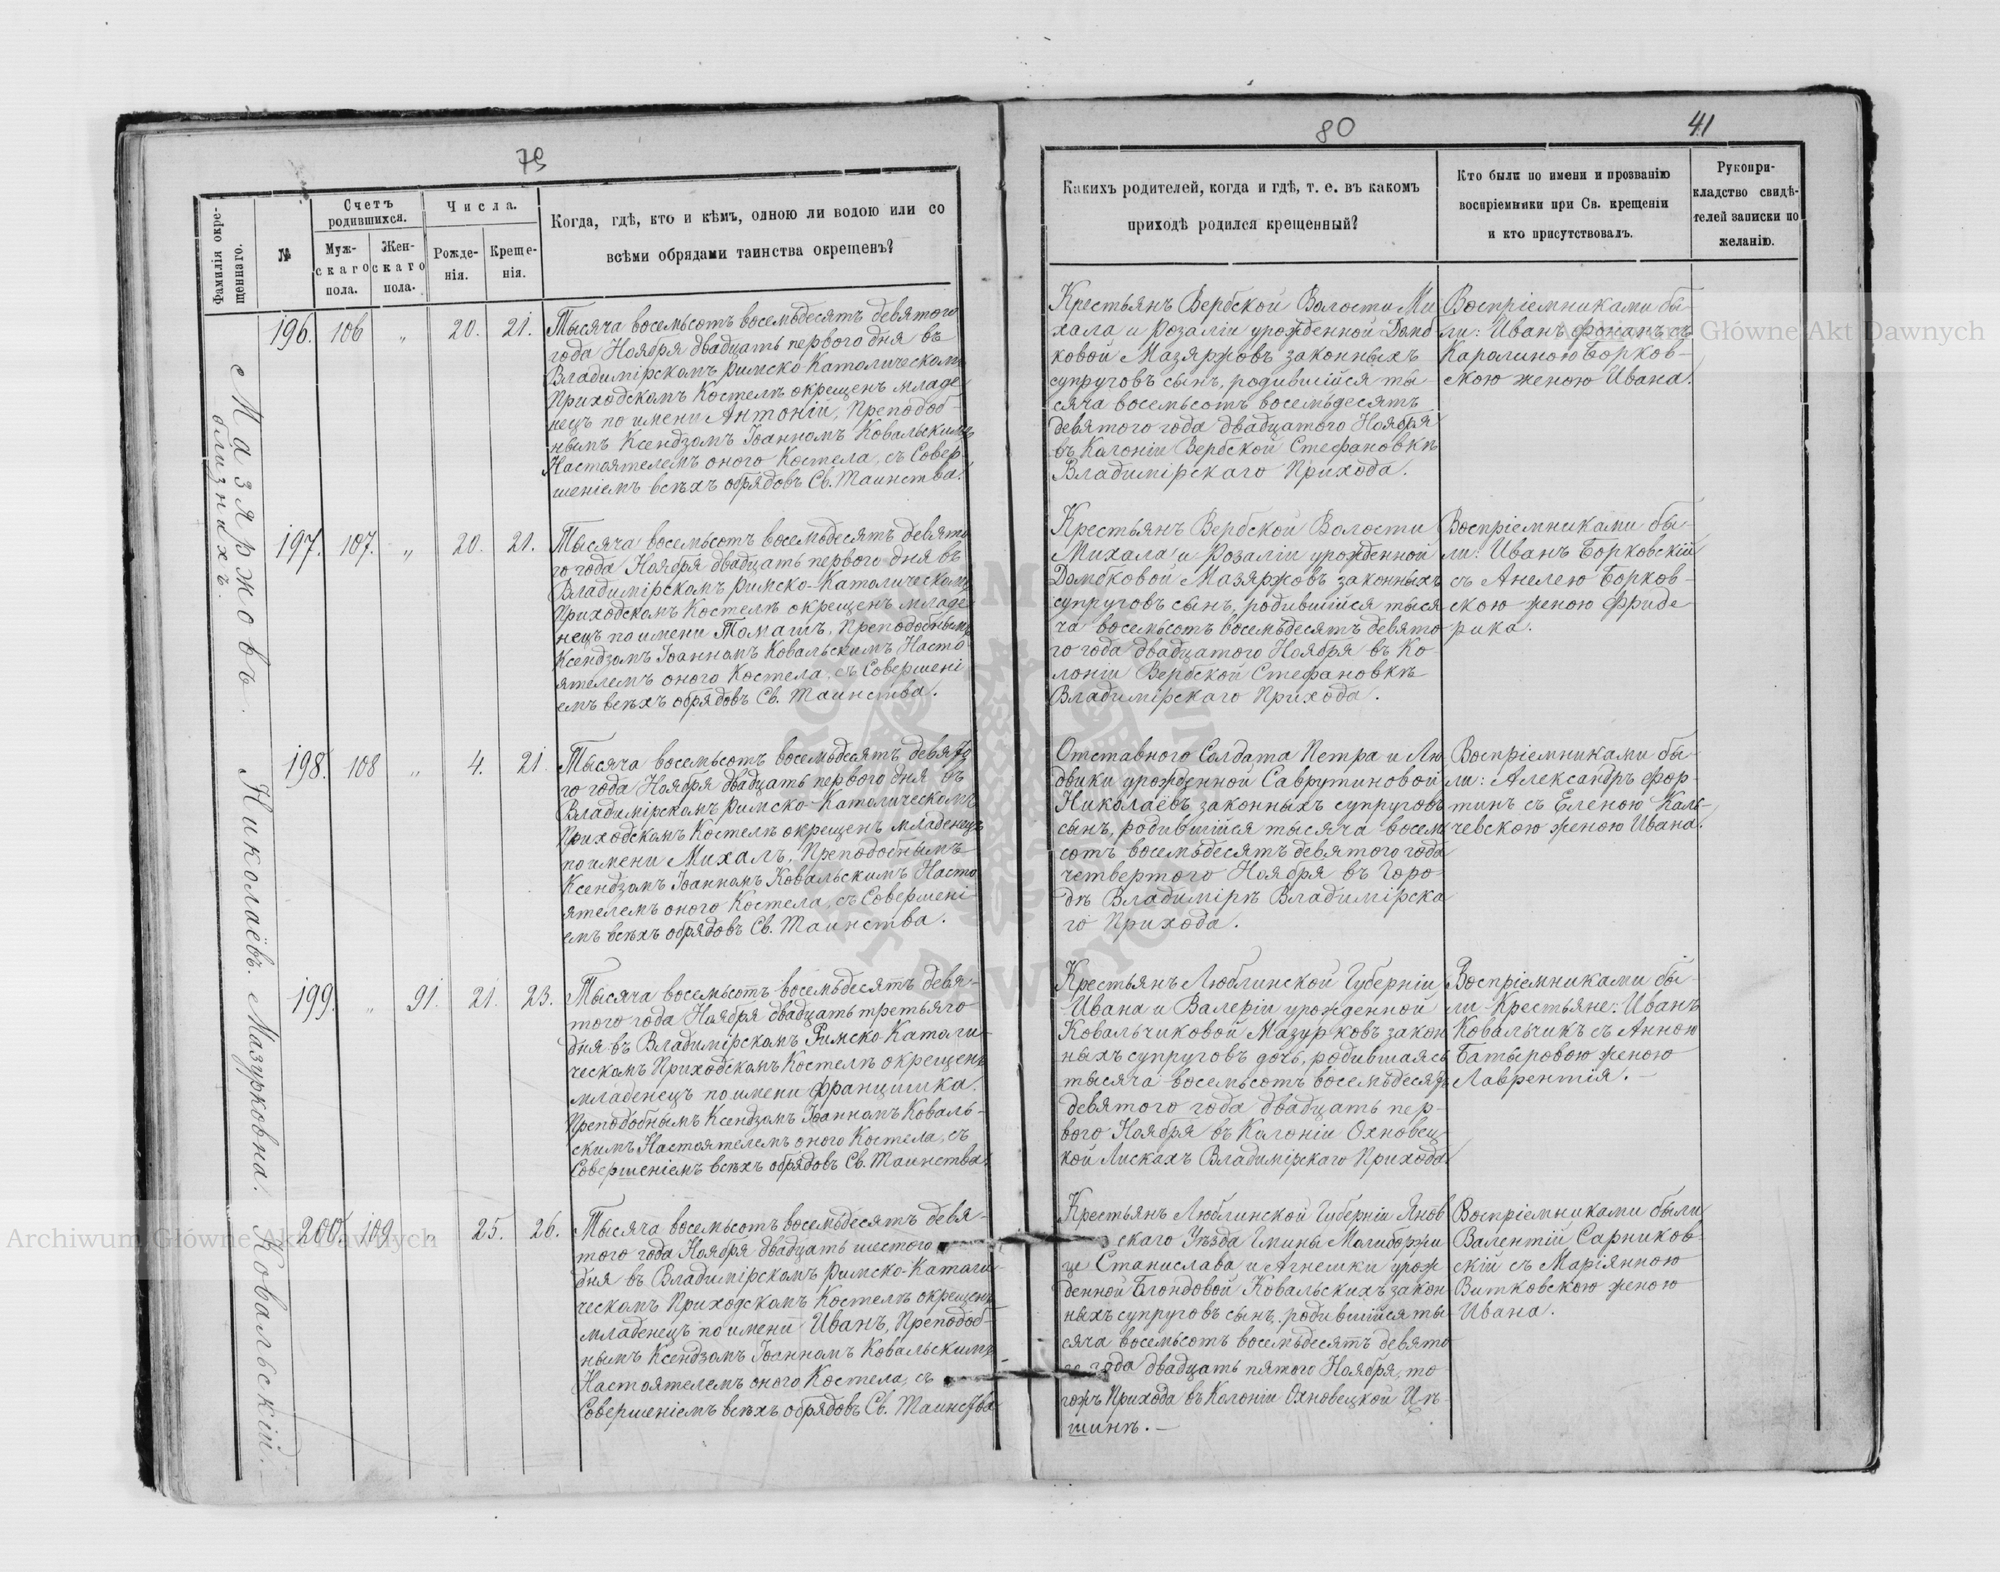 79
Фамилія окре-
щеннаго.
№
Счетъ
родившихся.
Муж-
скаго
пола.
Жен-
скаго
пола.
Числа.
Рожде-
нія.
Креще-
нія.
Когда, гдѣ, кто и кѣмъ, одною ли водою или со
всѣми обрядами таинства окрещенъ?
Мазяржовъ.
близнихъ.
196. 106 „ 20. 21.
Тысяча восемьсотъ восемьдесятъ девятого
года Ноября двадцать первого дня въ
Владимірскомъ Римско Католическомъ
Приходскомъ Костелѣ окрещенъ младе
нецъ по имени Антоній, Преподоб-
нымъ Ксендзомъ Іоанномъ Ковальскимъ
Настоятелемъ оного Костела, съ Совер-
шеніемъ всѣхъ обрядовъ Св. Таинства.
197. 107. „ 20. 21.
Тысяча восемьсотъ восемьдесятъ девято
го года Ноября двадцать первого дня въ
Владимірскомъ Римско-Католическомъ
Приходскомъ Костелѣ окрещенъ младе
нецъ по имени Томашъ, Преподобнымъ
Ксендзомъ Іоанномъ Ковальскимъ Насто
ятелемъ оного Костела, съ Совершені
емъ всѣхъ обрядовъ Св. Таинства.
Николаёвъ.
198. 108 „ 4. 21.
Тысяча восемьсотъ восемьдесятъ девято
го года Ноября двадцать первого дня въ
Владимірскомъ Римско-Католическомъ
Приходскомъ Костелѣ окрещенъ младенецъ
по имени Михалъ, Преподобнымъ
Ксендзомъ Іоанномъ Ковальскимъ Насто
ятелемъ оного Костела, съ Совершені
емъ всѣхъ обрядовъ Св. Таинства.
Мазурковна.
199. „ 91. 21. 23.
Тысяча восемьсотъ восемьдесятъ девя-
того года Ноября двадцать третьяго
дня въ Владимірскомъ Римско Католи-
ческомъ Приходскомъ Костелѣ окрещенъ
младенецъ по имени Францишка.
Преподобнымъ Ксендзомъ Іоанномъ Коваль-
скимъ Настоятелемъ оного Костела, съ
Совершеніемъ всѣхъ обрядовъ Св. Таинства.
Ковальскій.
200. 109 „ 25. 26.
Тысяча восемьсотъ восемьдесятъ девя-
того года Ноября двадцать шестого
дня въ Владимірскомъ Римско-Католи-
ческомъ Приходскомъ Костелѣ окрещенъ
младенецъ по имени Иванъ, Преподоб-
нымъ Ксендзомъ Іоанномъ Ковальскимъ
Настоятелемъ оного Костела, съ
Совершеніемъ всѣхъ обрядовъ Св. Таинства
80
41
Какихъ родителей, когда и гдѣ, т. е. въ какомъ
приходѣ родился крещенный?
Кто были по имени и прозванію
воспріемники при Св. крещеніи
и кто присутствовалъ.
Рукопри-
кладство свидѣ-
телей записки по
желанію.
Крестьянъ Вербской Волости Ми
хала и Розаліи урожденной Домб
ковой Мазяржовъ законныхъ
супруговъ сынъ, родившійся ты-
сяча восемьсотъ восемьдесятъ
девятого года двадцатого Ноября
въ Колоніи Вербской Стефановкѣ
Владимірскаго Прихода.
Воспріемниками бы-
ли: Иванъ съ
Каралиною Борков-
скою женою Ивана.
Крестьянъ Вербской Волости
Михала и Розаліи урожденной
Домбковой Мазяржовъ законныхъ
супруговъ сынъ, родившійся тыся
ча восемьсотъ восемьдесятъ девято
го года двадцатого Ноября въ Ко
лоніи Вербской Стефановкѣ
Владимірскаго Прихода.
Воспріемниками бы-
ли: Иванъ Борковскій
съ Анелею Борков-
скою женою Фриде
рика.
Отставного Солдата Петра и Лю
двики урожденной Саврутиновой
Николаёвъ законныхъ супруговъ
сынъ, родившійся тысяча восемь
сотъ восемьдесятъ девятого года
четвертого Ноября въ Горо-
дѣ Владимірѣ Владимірска
го Прихода.
Воспріемниками бы-
ли: Александръ Фор-
тинъ съ Еленою Каль-
чевскою женою Ивана.
Крестьянъ Люблинской Губерніи
Ивана и Валеріи урожденной
Ковальчиковой Мазурковъ закон
ныхъ супруговъ дочь, родившаяся
тысяча восемьсотъ восемьдесятъ
девятого года двадцать пер-
вого Ноября въ Колоніи Охновец
кой Лискахъ Владимірскаго Прихода
Воспріемниками бы-
ли Крестьяне: Иванъ
Ковальчикъ съ Анною
Батыровою женою
Лаврентія. —
Крестьянъ Люблинской Губерніи Янов
скаго Уѣзда Гмины
це Станислава и Агнешки урож
денной Блондовой Ковальскихъ закон
ныхъ супруговъ сынъ, родившійся ты-
сяча восемьсотъ восемьдесятъ девято
го года двадцать пятого Ноября, то
гожъ Прихода въ Колоніи Охновецкой Цѣ-
шинѣ. —
Воспріемниками были
Валентій Сарников-
скій съ Маріянною
Витковскою женою
Ивана.
Archiwum Główne Akt Dawnych
Główne Akt Dawnych